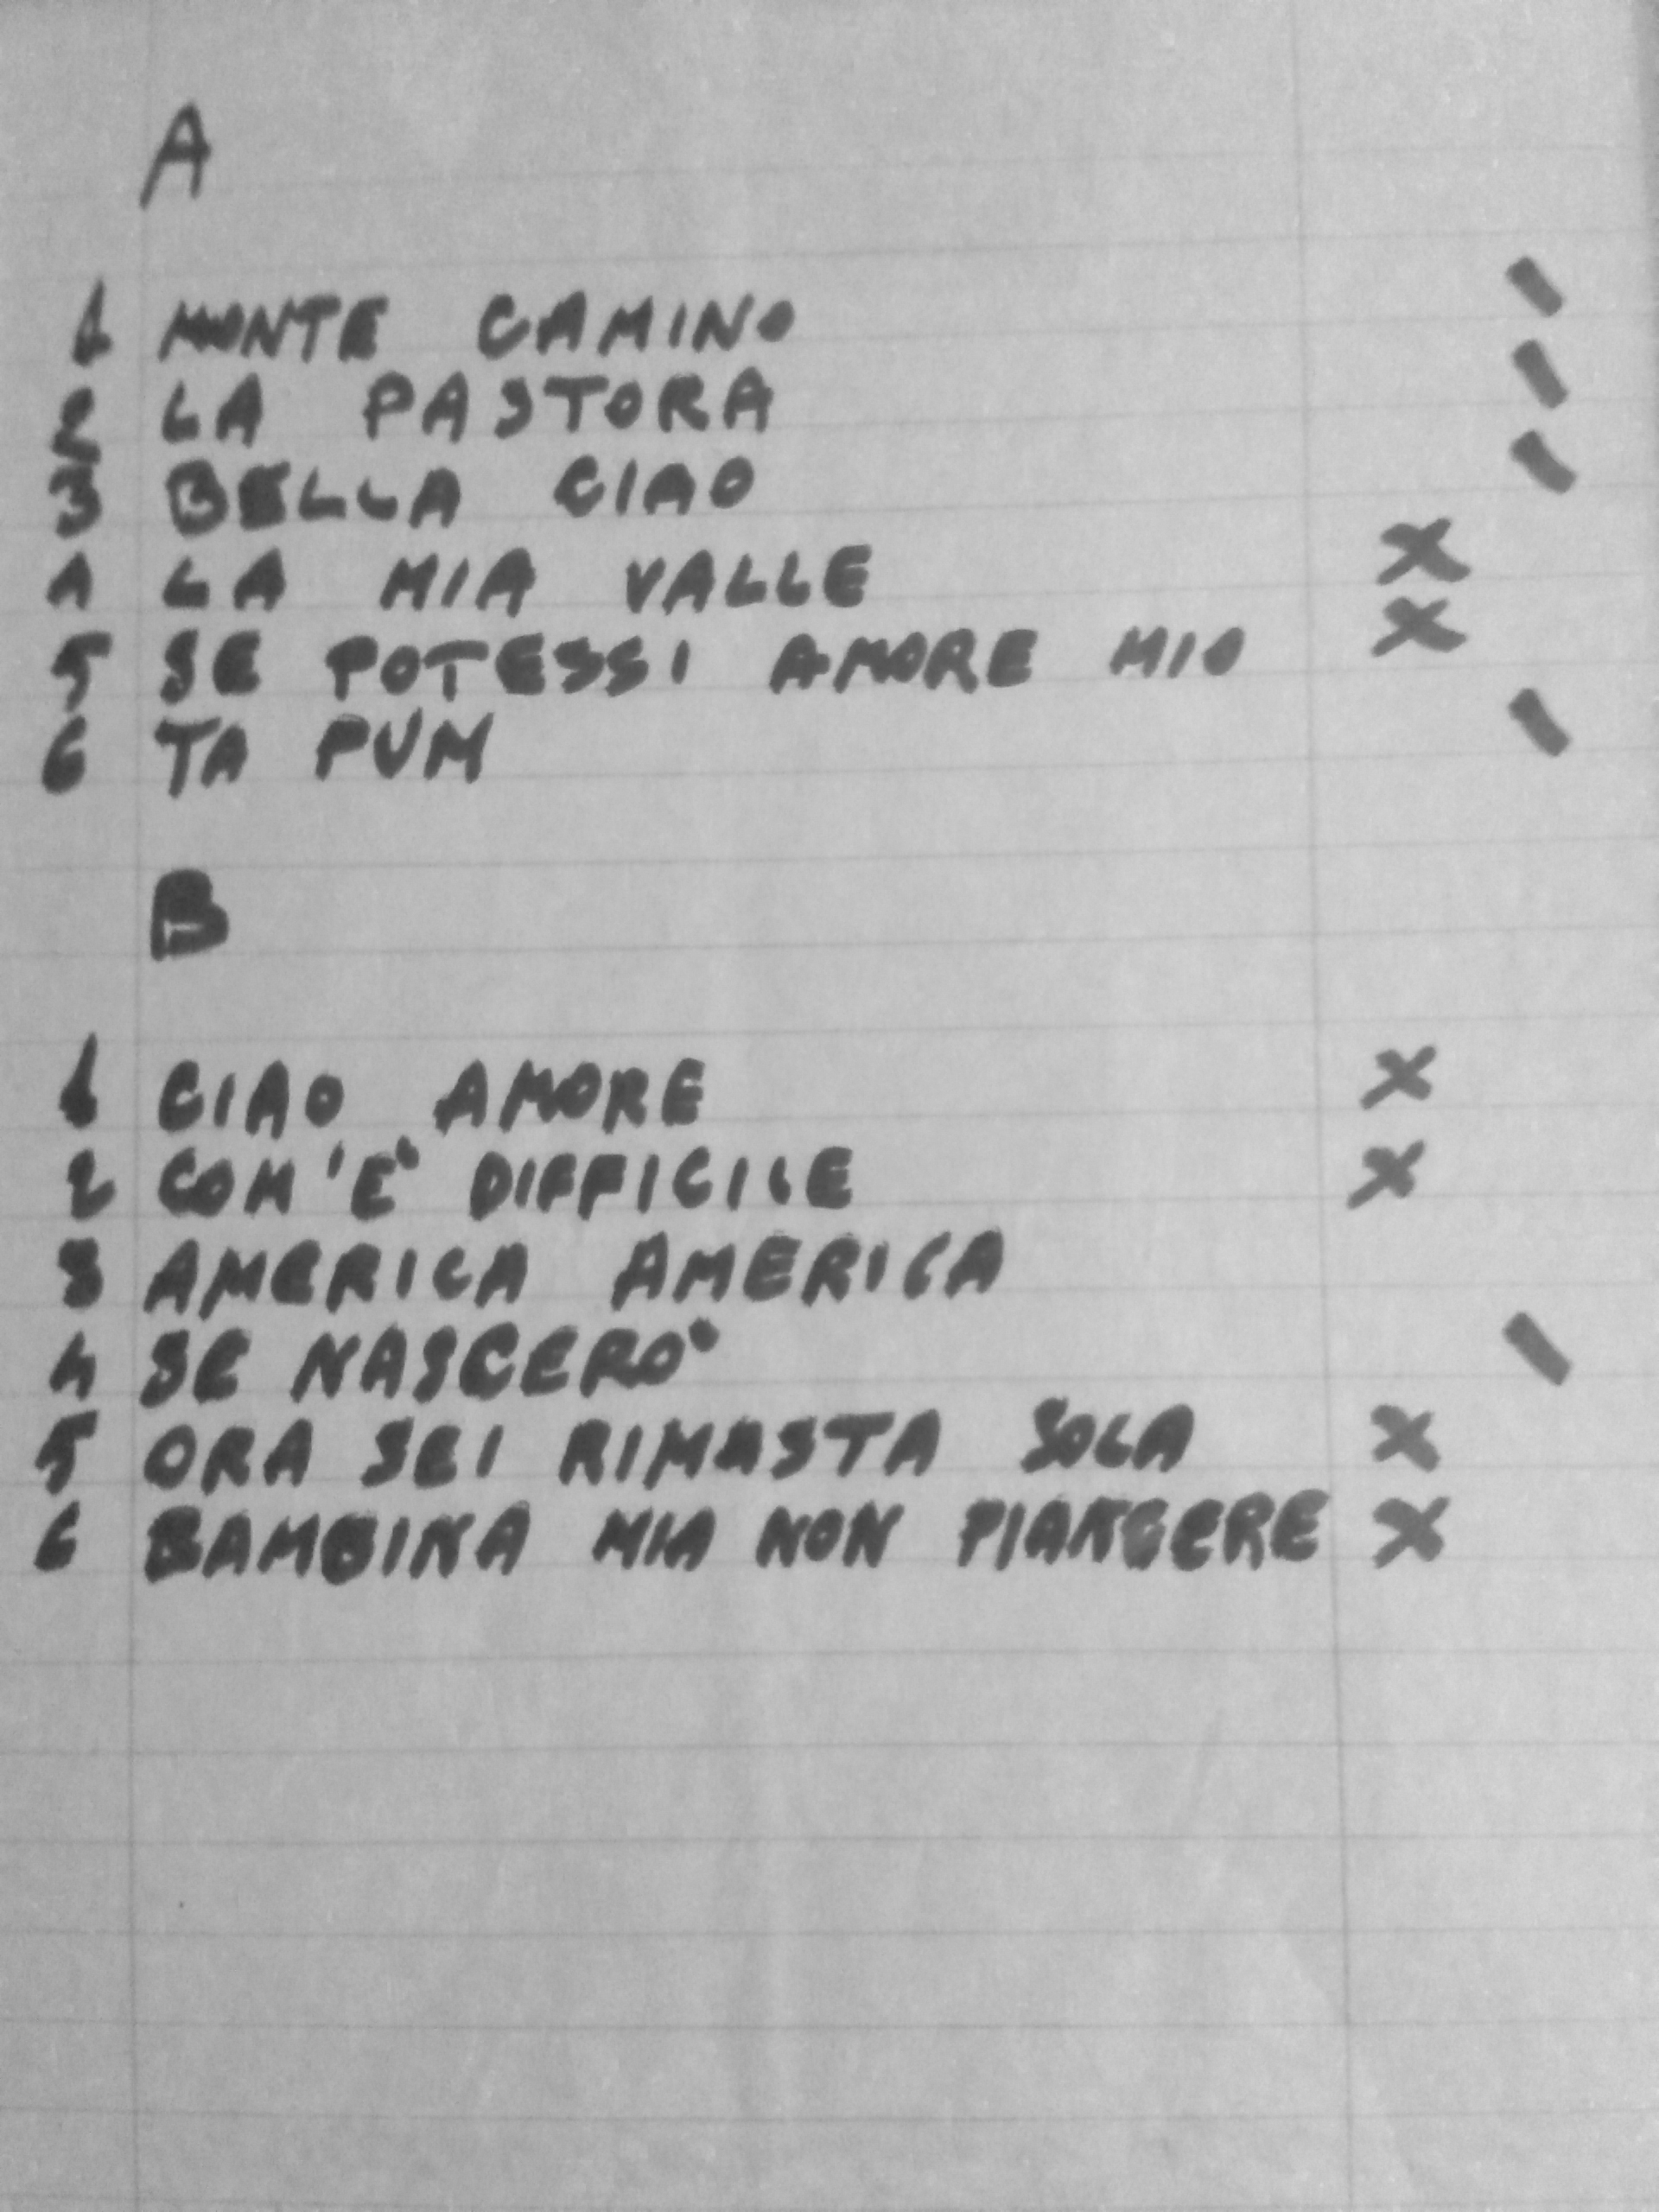 A
1 MONTE CAMINO \
2 LA PASTORA \
3 BELLA CIAO \
4 LA MIA VALLE X
5 SE POTESSI AMORE MIO X
6 TA PUM \
B
1 CIAO AMORE X
2 COM'E' DIFFICILE X
3 AMERICA AMERICA
4 SE NASCERO' \
5 ORA SEI RIMASTA SOLA X
6 BAMBINA MIA NON PIANGERE X